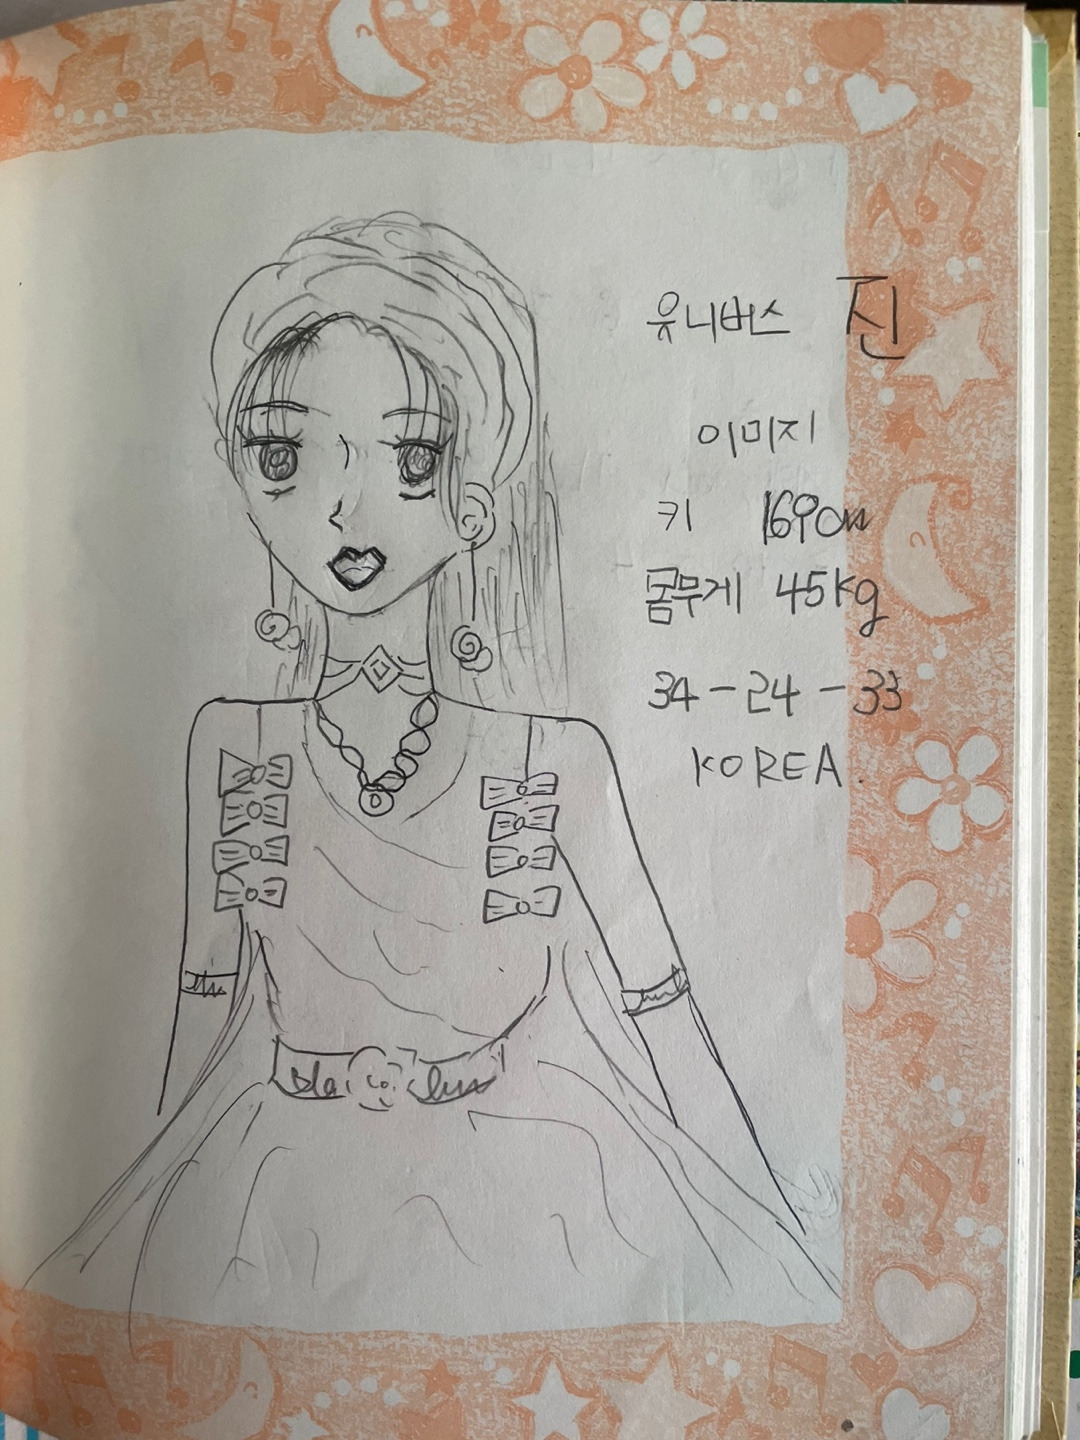 유니버스 진
이미지
키 169cm
몸무게 45kg
34-24-33
KOREA.